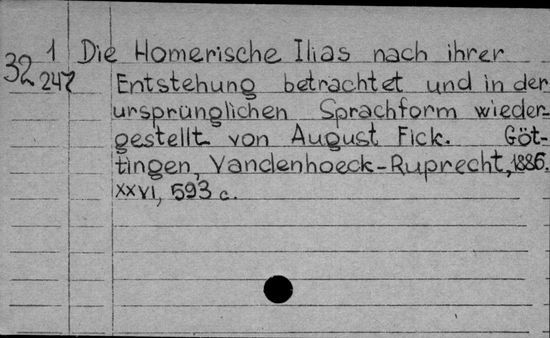 32 1 Die Homerische Ilias nach ihrer
247 Entstehung betrachtet und in der
ursprünglichen Sprachform wieder-
gestellt von August Fick. Göt-
tingen, Vandenhoeck-Ruprecht, 1886.
XXVI, 593 c.